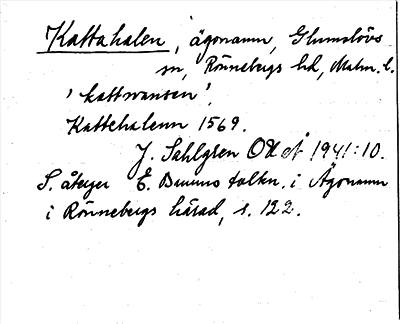 Kattahalen, ägonamn, Glumslövs
sn, Rönnebergs hd, Malm. l.
'kattsvansen'.
Kattehalenn 1569.
J. Sahlgren OUÅ 1941:10.
S. återger E. Bruuns tolkn. i Ägonamn
i Rönnebergs härad, s. 122.